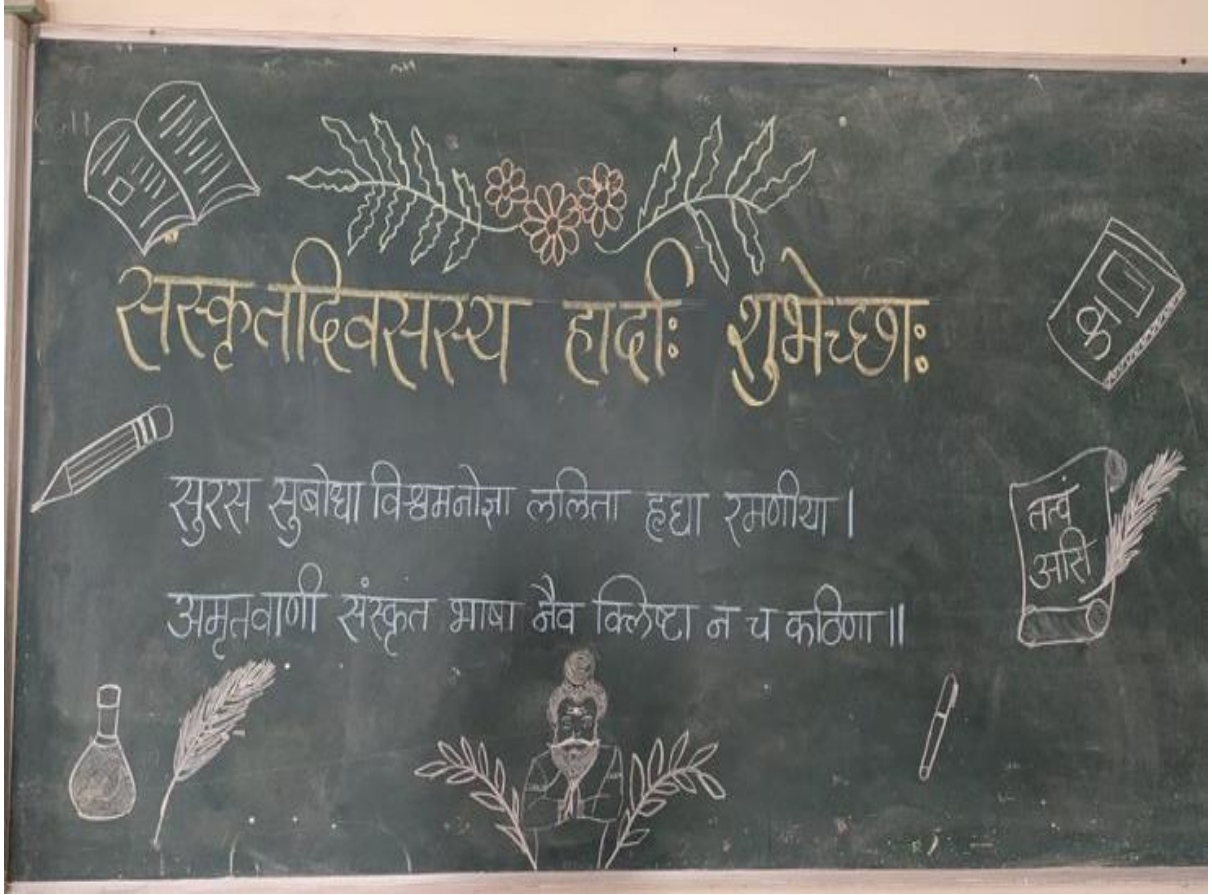 संस्कृतदिवसस्य हार्दाः शुभेच्छाः
सुरस सुबोधा विश्वमनोज्ञा ललिता हृद्या रमणीया ।
अमृतवाणी संस्कृत भाषा नैव क्लिष्टा न च कठिणा ॥
क्ष
तत्वं
असि